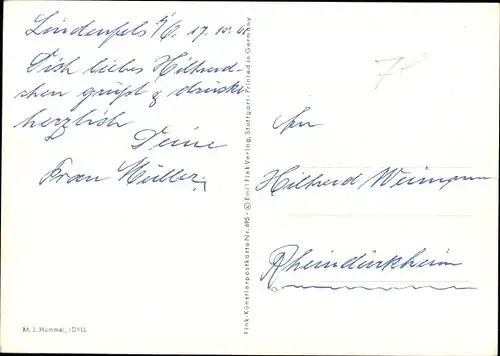 Lindenfels 17. 10.
Dich liebes Hiltrud-
chen grüßt & drückt
herzlich
Deine
Frau Müller.
M. J. Hummel, IDYLL
Fink-Künstlerpostkarte Nr. 695 · © Emil Fink Verlag, Stuttgart · Printed in Germany
An
Hiltrud
Rheindürkheim